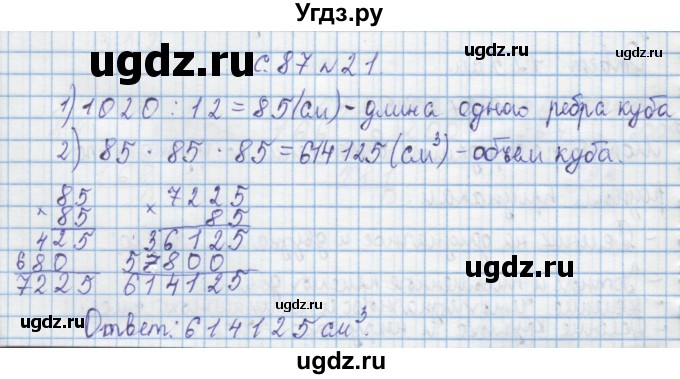 Угдз.ру
с. 87 №21.
1) 1020 : 12 = 85 (см) - длина одного ребра куба
2) 85 · 85 · 85 = 614125 (см³) - объем куба.
85 7225
× 85 × 85
425 36125
680 57800
7225 614125
Ответ: 614125 см³.
ugdz.ru
ugdz.ru
ugdz.ru
ugdz.ru
ugdz.ru
ugdz.ru
ugdz.ru
ugdz.ru
ugdz.ru
ugdz.ru